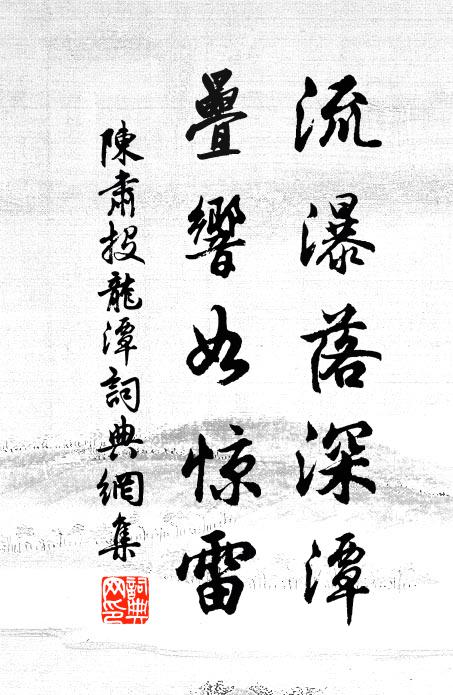 流瀑落深潭
疊響如惊雷
陳肅投龍潭詞典網集
詞典网印